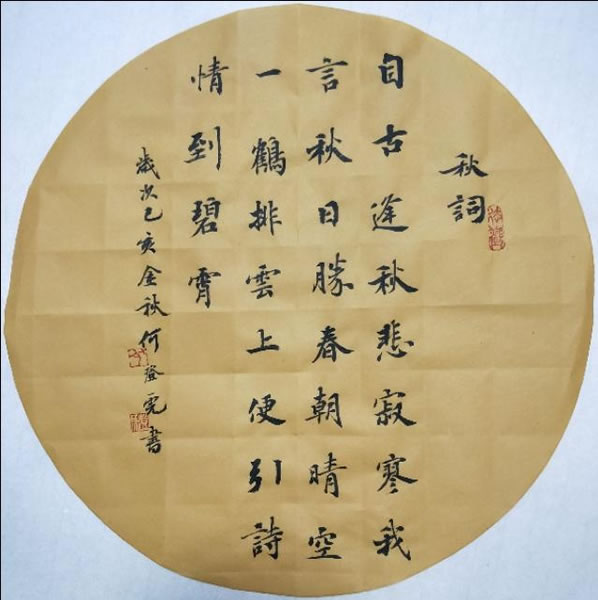 秋詞
自古逢秋悲寂寒我
言秋日勝春朝晴空
一鶴排雲上便引詩
情到碧霄
歲次己亥金秋何登亮書